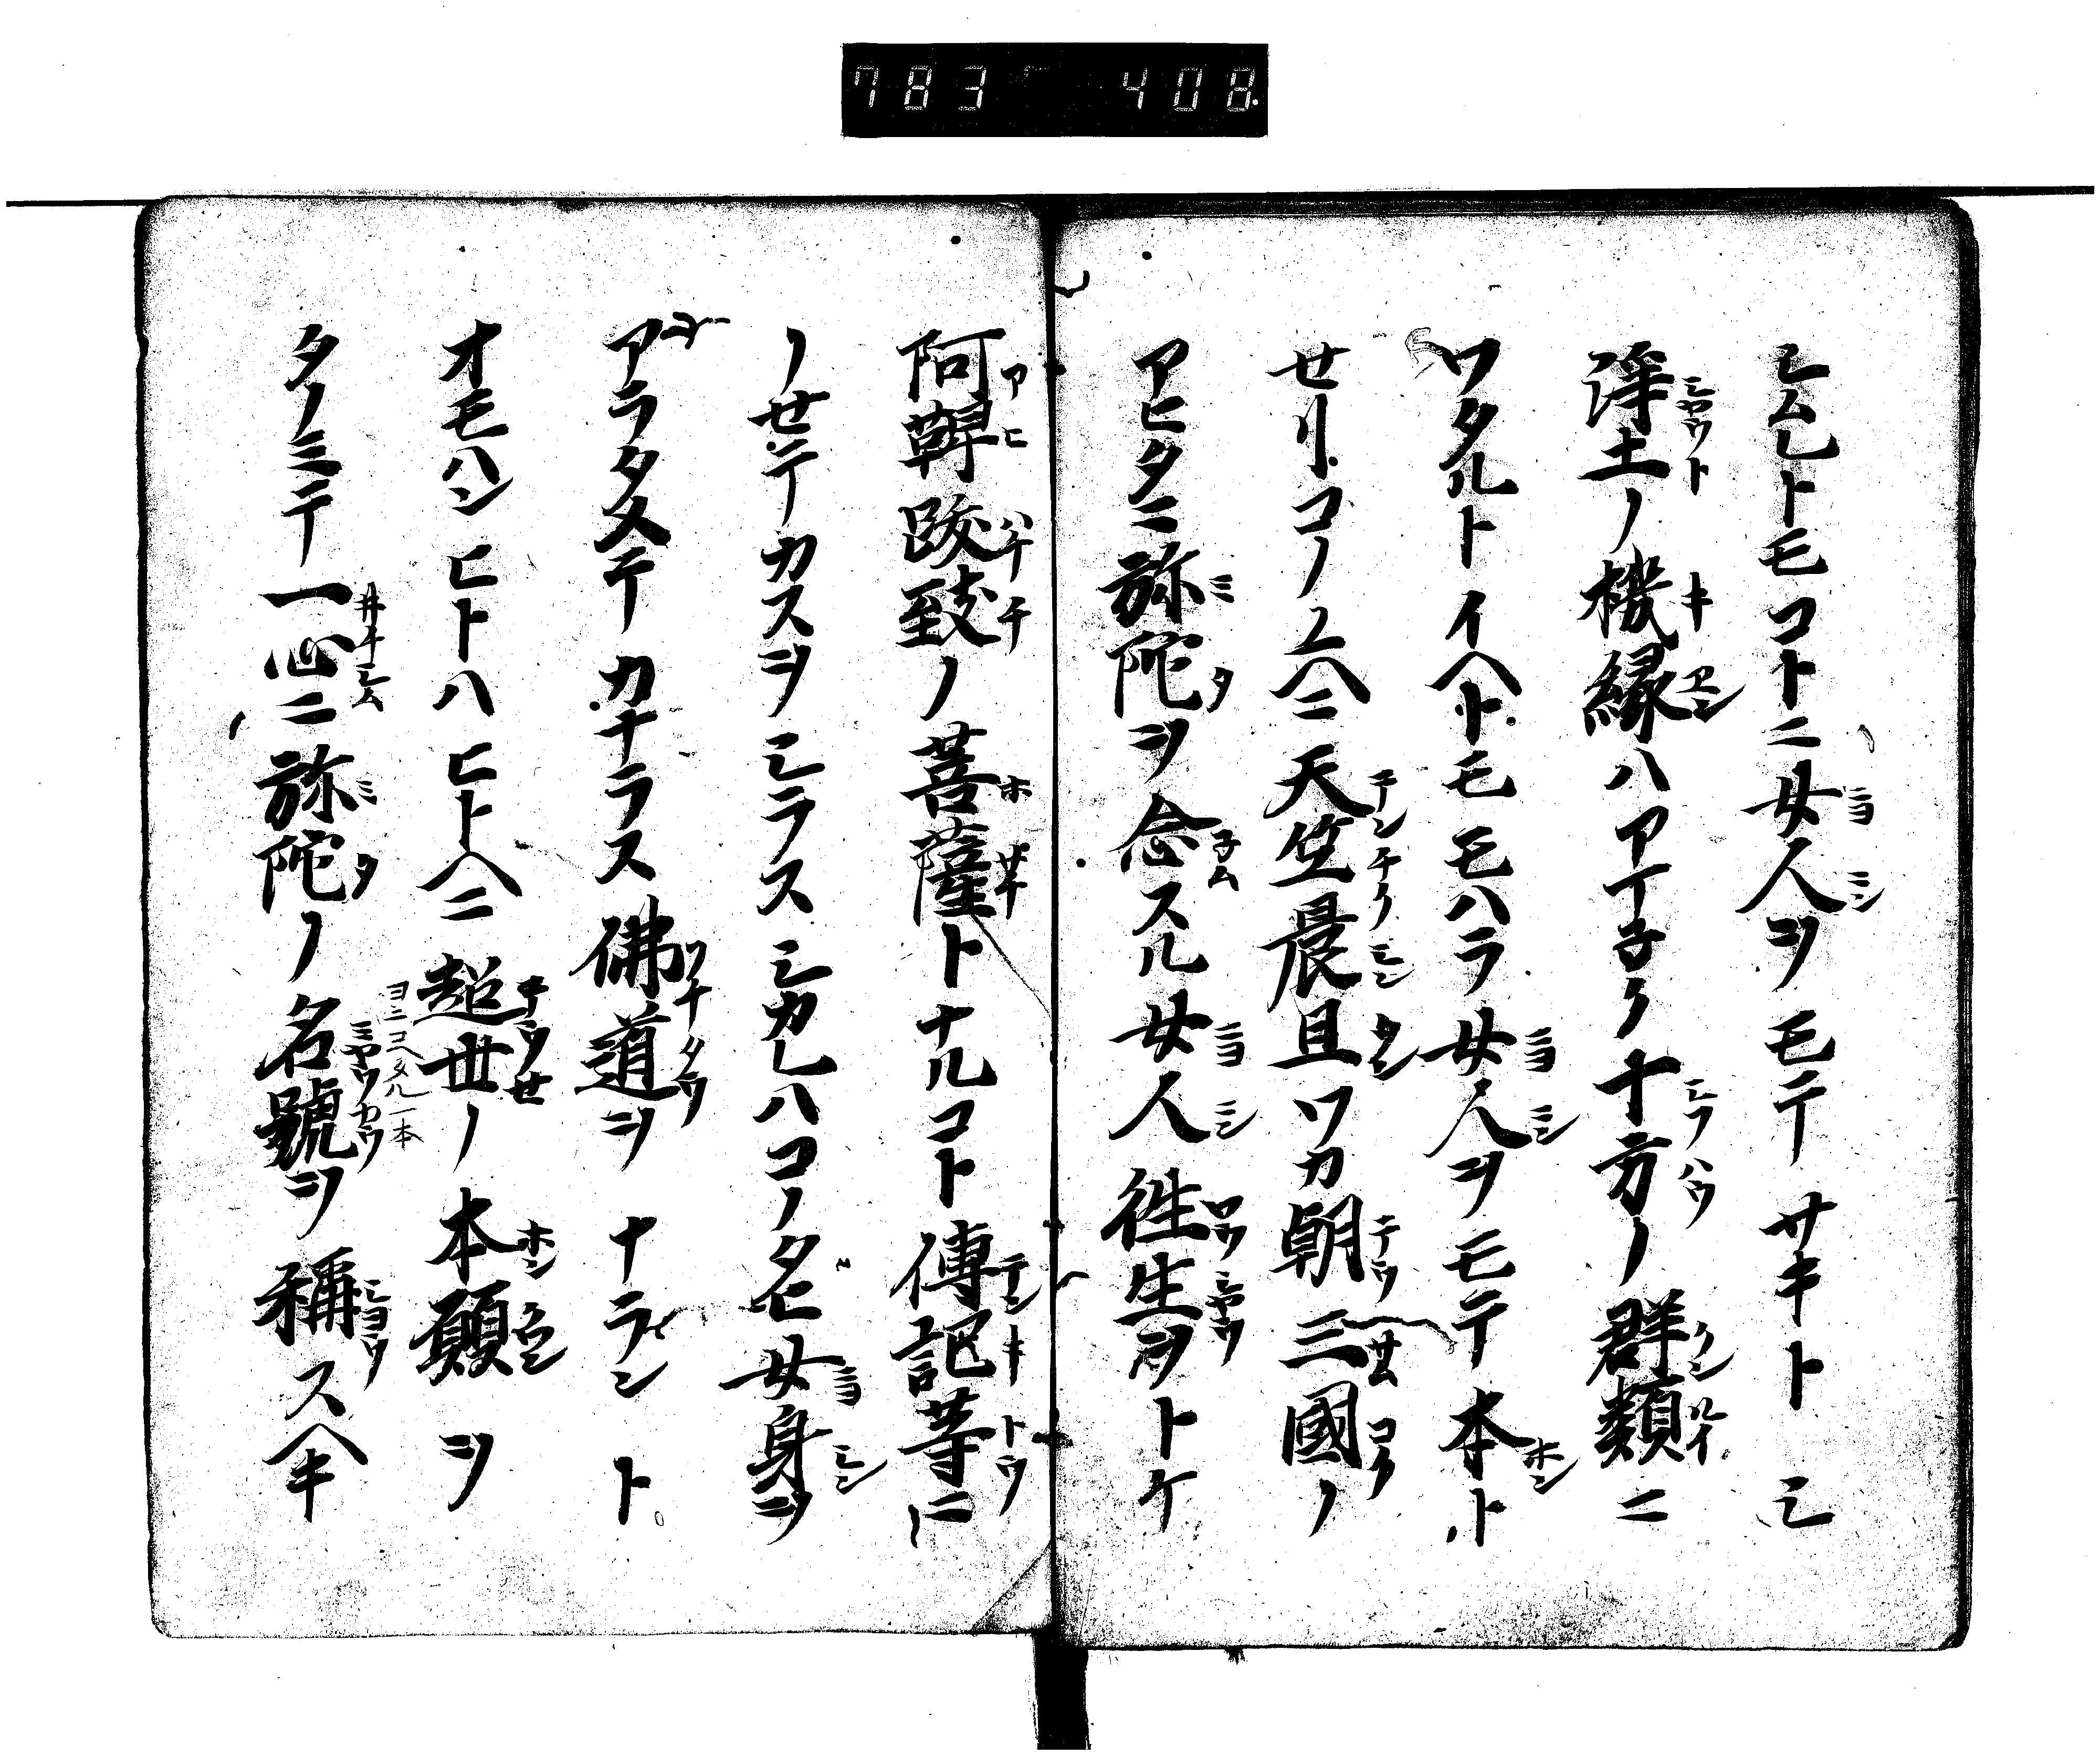 783 408
シムシトモコトニ女人ヲモテサキトシ
浄土ノ機縁ハアマネク十方ノ群類ニ
ワタルトイヘトモモハラ女人ヲモテ本ト
セリコノユヘニ天竺晨旦ワカ朝三國ノ
アヒタニ弥陀ヲ念スル女人往生ヲトケ
阿鞞跋致ノ菩薩トナルコト傳記等ニ
ノセテカスヲシラスシカレハコノタヒ女身ヲ
アラタメテカナラス佛道ヲナラントオ
オモハンヒトハヒトヘニ超世ノ本願ヲ
タノミテ一心ニ弥陀ノ名號ヲ稱スヘキ